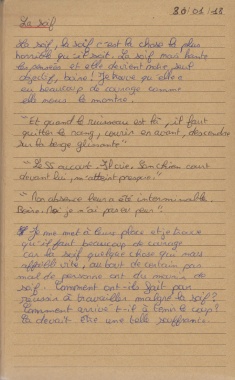 30/01/18
La soif
La soif, la soif c'est la chose la plus
horrible qu'il soit. La soif mais hante
et elle devient notre seul
objectif, boire! Je trouve qu'elle a
eu beaucoup de courage comme
elle nous le montre.
"Et quand le ruisseau est là, il faut
quitter le rang, courir en avant, descendre
sur la berge glissante"
"Le SS accourt. Il crie. Son chien court
devant lui, m'atteint presque."
"Mon absence leur a été interminable.
Boire. Moi je n'ai pas eu peur"
Je me met à leur place et je trouve
qu'il faut beaucoup de courage
car la soif quelque chose qui nous
affaiblit vite, au bout de certain pas
mal de personne ont du mourir de
soif. Comment ont-ils fait pour
réussir à travailler malgré la soif?
Comment arrive t-il à tenir le coup?
Ça devait être une belle souffrance.